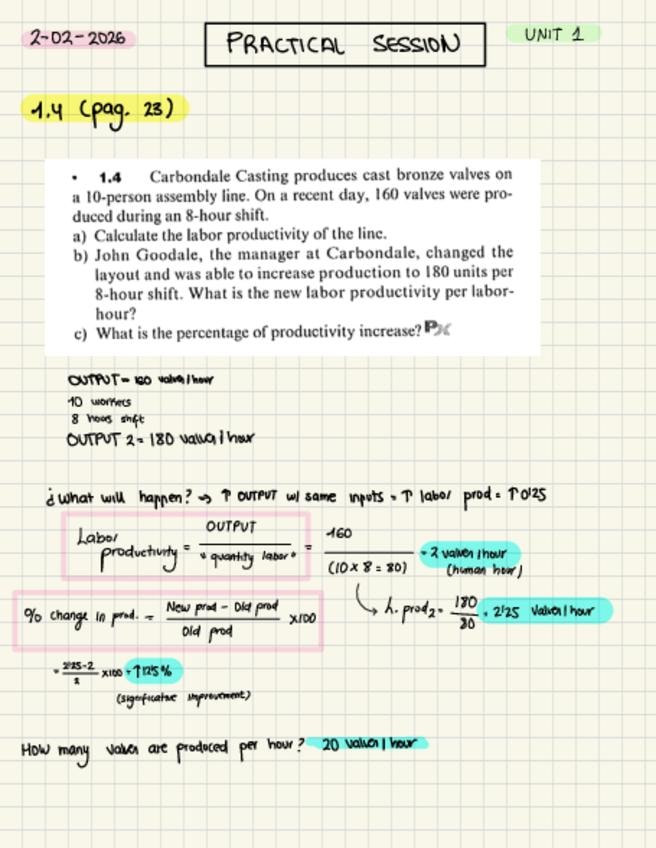 2-02-2026
PRACTICAL SESSION
UNIT 1
1.4 (pag. 23)
• 1.4 Carbondale Casting produces cast bronze valves on
a 10-person assembly line. On a recent day, 160 valves were pro-
duced during an 8-hour shift.
a) Calculate the labor productivity of the line.
b) John Goodale, the manager at Carbondale, changed the
layout and was able to increase production to 180 units per
8-hour shift. What is the new labor productivity per labor-
hour?
c) What is the percentage of productivity increase? PX
OUTPUT = 160 valves/hour
10 workers
8 hours shift
OUTPUT 2 = 180 valves/hour
¿What will happen? → ↑ OUTPUT w/ same inputs = ↑ labor prod = ↑ 0'25
Labor productivity = OUTPUT / "quantity labor" = 160 / (10 x 8 = 80) = 2 valves/hour
(human hour)
h. prod 2 = 180 / 80 = 2'25 valves/hour
% change in prod. = New prod - Old prod / Old prod x100
= 2'25-2 / 2 x100 = ↑12'5%
(significative improvement)
How many valves are produced per hour? 20 valves/hour